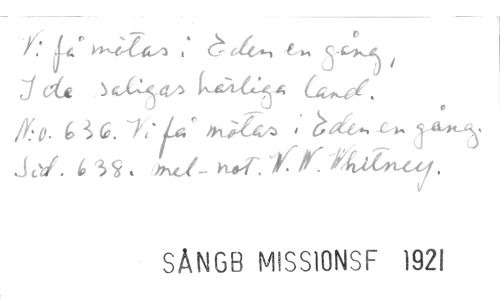 Vi få mötas i Eden en gång,
I de saligas härliga land.
N:o. 636. Vi få mötas i Eden en gång.
Sid. 638. mel-not. W. W. Whitney.
SÅNGB MISSIONSF 1921